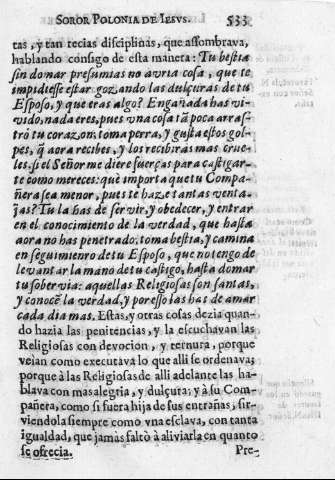 SOROR POLONIA DE IESVS. 533
tas, y tan recias disciplinas, que assombrava,
hablando consigo de esta manera: Tu bestia
sin domar presumias no avria cosa, que te
impidiesse estar gozando las dulçuras de tu
Esposo, y que eras algo? Engañada has vi-
vido, nada eres, pues vna cosa tã poca arras-
trò tu corazon, toma perra, y gusta estos gol-
pes, q̃ aora recibes, y los recibiras mas crue-
les. si el Señor me diere fuerças para castigar-
te como mereces: què importa que tu Compa-
ñera sea menor, pues te haze tantas venta-
jas? Tu la has de servir, y obedecer, y entrar
en el conocimiento de la verdad, que hasta
aora no has penetrado, toma bestia, y camina
en seguimienro de tu Esposo, que no tengo de
levantar la mano de tu castigo, hasta domar
tu sobervia: aquellas Religiosas son santas,
y conocẽ la verdad, y por esso las has de amar
cada dia mas. Estas, y otras cosas dezia quan-
do hazia las penitencias, y la escuchavan las
Religiosas con devocion, y ternura, porque
veian como executava lo que alli se ordenava;
porque à las Religiosas de alli adelante las ha-
blava con mas alegria, y dulçura; y à su Com-
pañera, como si fuera hija de sus entrañas, sir-
viendola siempre como vna esclava, con tanta
igualdad, que jamas faltò à aliviarla en quanto
se ofrecia. Pre-